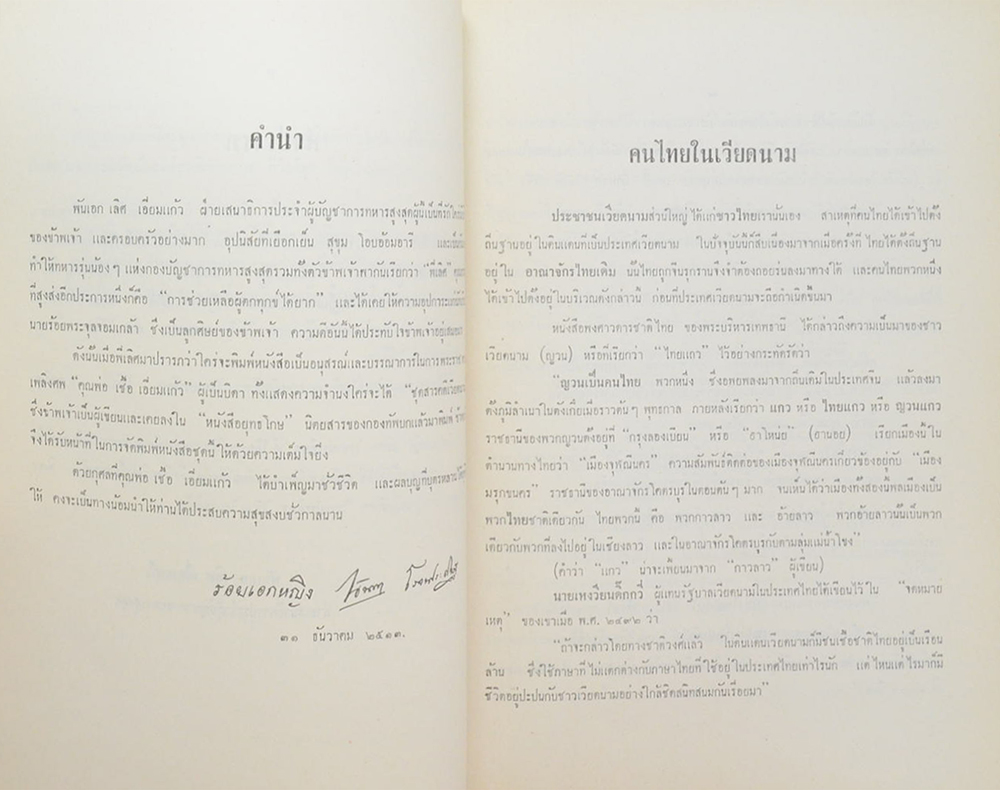 คำนำ
พันเอก เลิศ เอี่ยมแก้ว ฝ่ายเสนาธิการประจำผู้บัญชาการทหารสูงสุดผู้นี้เป็นที่รักใคร่
ของข้าพเจ้า และครอบครัวอย่างมาก อุปนิสัยที่เยือกเย็น สุขุม โอบอ้อมอารี
ทำให้ทหารรุ่นน้องๆ แห่งกองบัญชาการทหารสูงสุดรวมทั้งตัวข้าพเจ้าพากันเรียกว่า "พี่เลิศ"
ที่สูงส่งอีกประการหนึ่งก็คือ "การช่วยเหลือผู้ตกทุกข์ได้ยาก" และได้เคยให้ความอุปการะ
นายร้อยพระจุลจอมเกล้า ซึ่งเป็นลูกศิษย์ของข้าพเจ้า ความดีอันนี้ได้ประทับใจข้าพเจ้าอยู่เสมอ
ดังนั้นเมื่อพี่เลิศมาปรารภว่าใคร่จะพิมพ์หนังสือเป็นอนุสรณ์และบรรณาการในการพระราช
เพลิงศพ "คุณพ่อ เชื้อ เอี่ยมแก้ว" ผู้เป็นบิดา ทั้งแสดงความจำนงใคร่จะได้ "ชุดสารคดีเวียดนาม
ซึ่งข้าพเจ้าเป็นผู้เขียนและเคยลงใน "หนังสือยุทธโกษ" นิตยสารของกองทัพบกแล้วมาพิมพ์
จึงได้รับหน้าที่ในการจัดพิมพ์หนังสือชุดนี้ ให้ด้วยความเต็มใจยิ่ง
ด้วยกุศลที่คุณพ่อ เชื้อ เอี่ยมแก้ว ได้บำเพ็ญมาชั่วชีวิต และผลบุญที่บุตรหลาน
ให้ คงจะเป็นทางน้อมนำให้ท่านได้ประสบความสุขสงบชั่วกาลนาน
ร้อยเอกหญิง
๓๑ ธันวาคม ๒๕๑๓.
คนไทยในเวียดนาม
ประชาชนเวียดนามส่วนใหญ่ ได้แก่ชาวไทยเรานั่นเอง สาเหตุที่คนไทยได้เข้าไปตั้ง
ถิ่นฐานอยู่ในดินแดนที่เป็นประเทศเวียดนาม ในปัจจุบันนี้ก็สืบเนื่องมาจากเมื่อครั้งที่ ไทยได้ตั้งถิ่นฐาน
อยู่ใน อาณาจักรไทยเดิม นั้นไทยถูกจีนรุกรานจึงจำต้องถอยร่นลงมาทางใต้ และคนไทยพวกหนึ่ง
ได้เข้าไปตั้งอยู่ในบริเวณดังกล่าวนี้ ก่อนที่ประเทศเวียดนามจะถือกำเนิดขึ้นมา
หนังสือพงศาวดารชาติไทย ของพระบริหารเทพธานี ได้กล่าวถึงความเป็นมาของชาว
เวียดนาม (ญวน) หรือที่เรียกว่า "ไทยแกว" ไว้อย่างกระทัดรัดว่า
"ญวนเป็นคนไทย พวกหนึ่ง ซึ่งอพยพลงมาจากถิ่นเดิมในประเทศจีน แล้วลงมา
ตั้งภูมิลำเนาในตังเกี๋ยเมื่อราวต้นๆ พุทธกาล ภายหลังเรียกว่า แกว หรือ ไทยแกว หรือ ญวนแกว
ราชธานีของพวกญวนตั้งอยู่ที่ "กรุงลองเบียน" หรือ "ฮาโหน่ย" (ฮานอย) เรียกเมืองนี้ใน
ตำนานทางไทยว่า "เมืองจุฬณีนคร" ความสัมพันธ์ติดต่อของเมืองจุฬณีนครเกี่ยวข้องอยู่กับ "เมือง
มรุกขนคร" ราชธานีของอาณาจักรโคตรบูรในตอนต้นๆ มาก จนเห็นได้ว่าเมืองทั้งสองนี้พลเมืองเป็น
พวกไทยชาติเดียวกัน ไทยพวกนี้ คือ พวกกาวลาว และ อ้ายลาว พวกอ้ายลาวนั้นเป็นพวก
เดียวกับพวกที่ลงไปอยู่ในเชียงลาว และในอาณาจักรโคตรบูรกับตามลุ่มแม่น้ำโขง"
(คำว่า "แกว" น่าจะเพี้ยนมาจาก "กาวลาว" ผู้เขียน)
นายเหงวียนดึ๊กกวี่ ผู้แทนรัฐบาลเวียดนามในประเทศไทยได้เขียนไว้ใน "จดหมาย
เหตุ" ของเขาเมื่อ พ.ศ. ๒๔๙๒ ว่า
"ถ้าจะกล่าวโดยทางชาติวงศ์แล้ว ในดินแดนเวียดนามก็มีชนเชื้อชาติไทยอยู่เป็นเรือน
ล้าน ซึ่งใช้ภาษาที่ไม่แตกต่างกับภาษาไทยที่ใช้อยู่ในประเทศไทยเท่าไรนัก แต่ไหนแต่ไรมาก็มี
ชีวิตอยู่ปะปนกับชาวเวียดนามอย่างใกล้ชิดสนิทสนมกันเรื่อยมา"